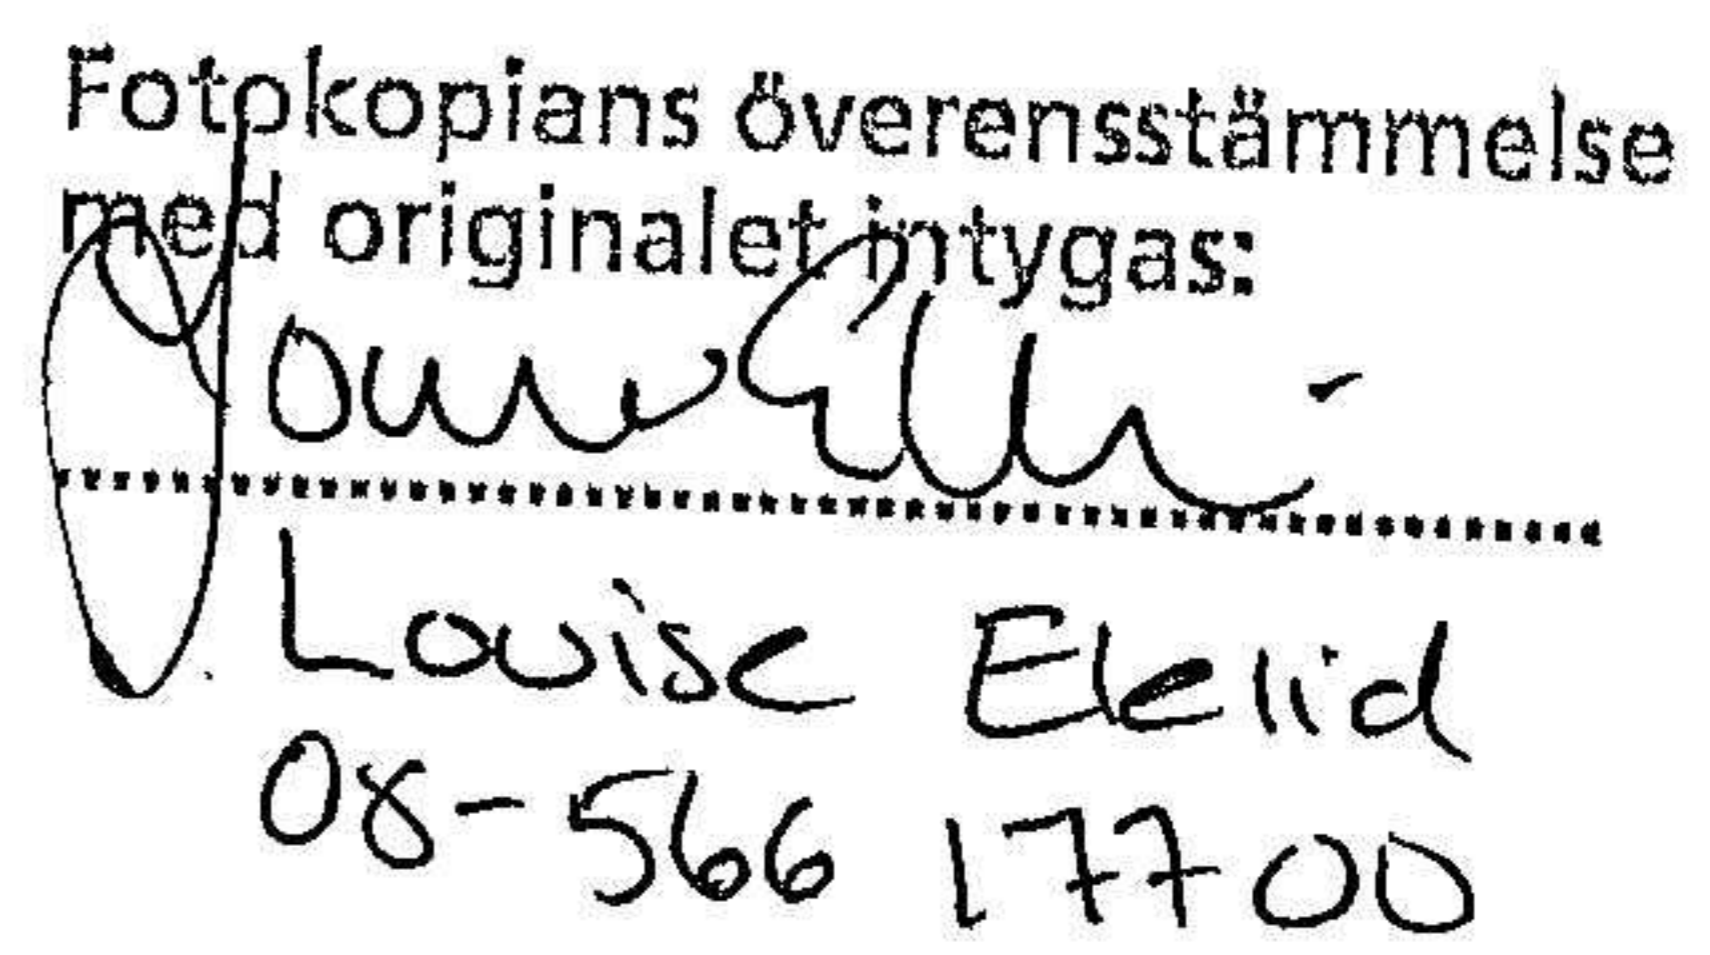 Fotokopians överensstämmelse
med originalet intygas:
Louise Ekelid
08-566 177 00